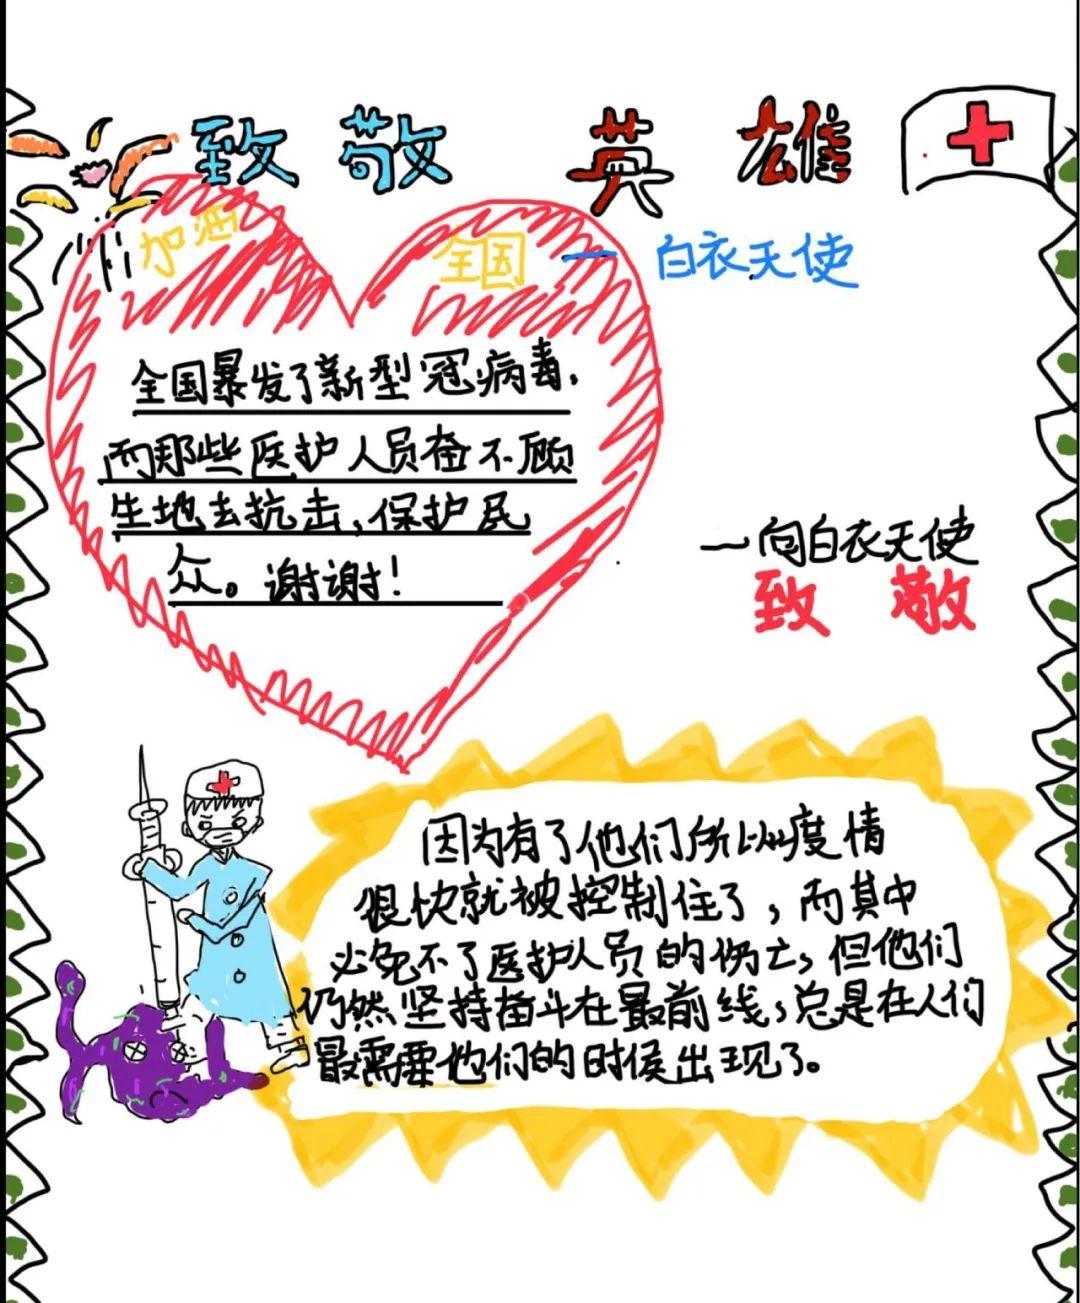 致敬 英雄
加洒 全国 — 白衣天使
全国暴发了新型冠病毒,
而那些医护人员奋不顾
生地去抗击,保护民
众。谢谢!
—向白衣天使
致敬
因为有了他们所以度情
很快就被控制住了,而其中
必免不了医护人员的伤亡,但他们
仍然坚持奋斗在最前线,总是在人们
最需要他们的时候出现了。